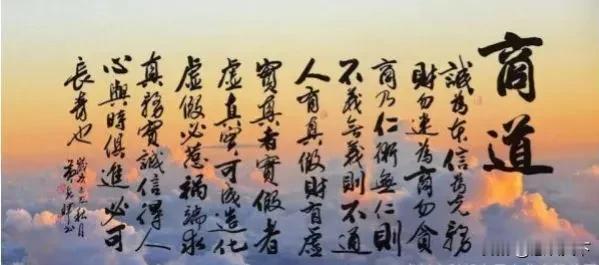 商道
誠為本信為先務
財勿迷為商勿貪
商乃仁術無仁則
不義無義則不通
人有真假財有虛
實真者實假者
虛真實可成造化
虛假必惹禍端求
真務實誠信得人
心與時俱進必可
長青也
秋月